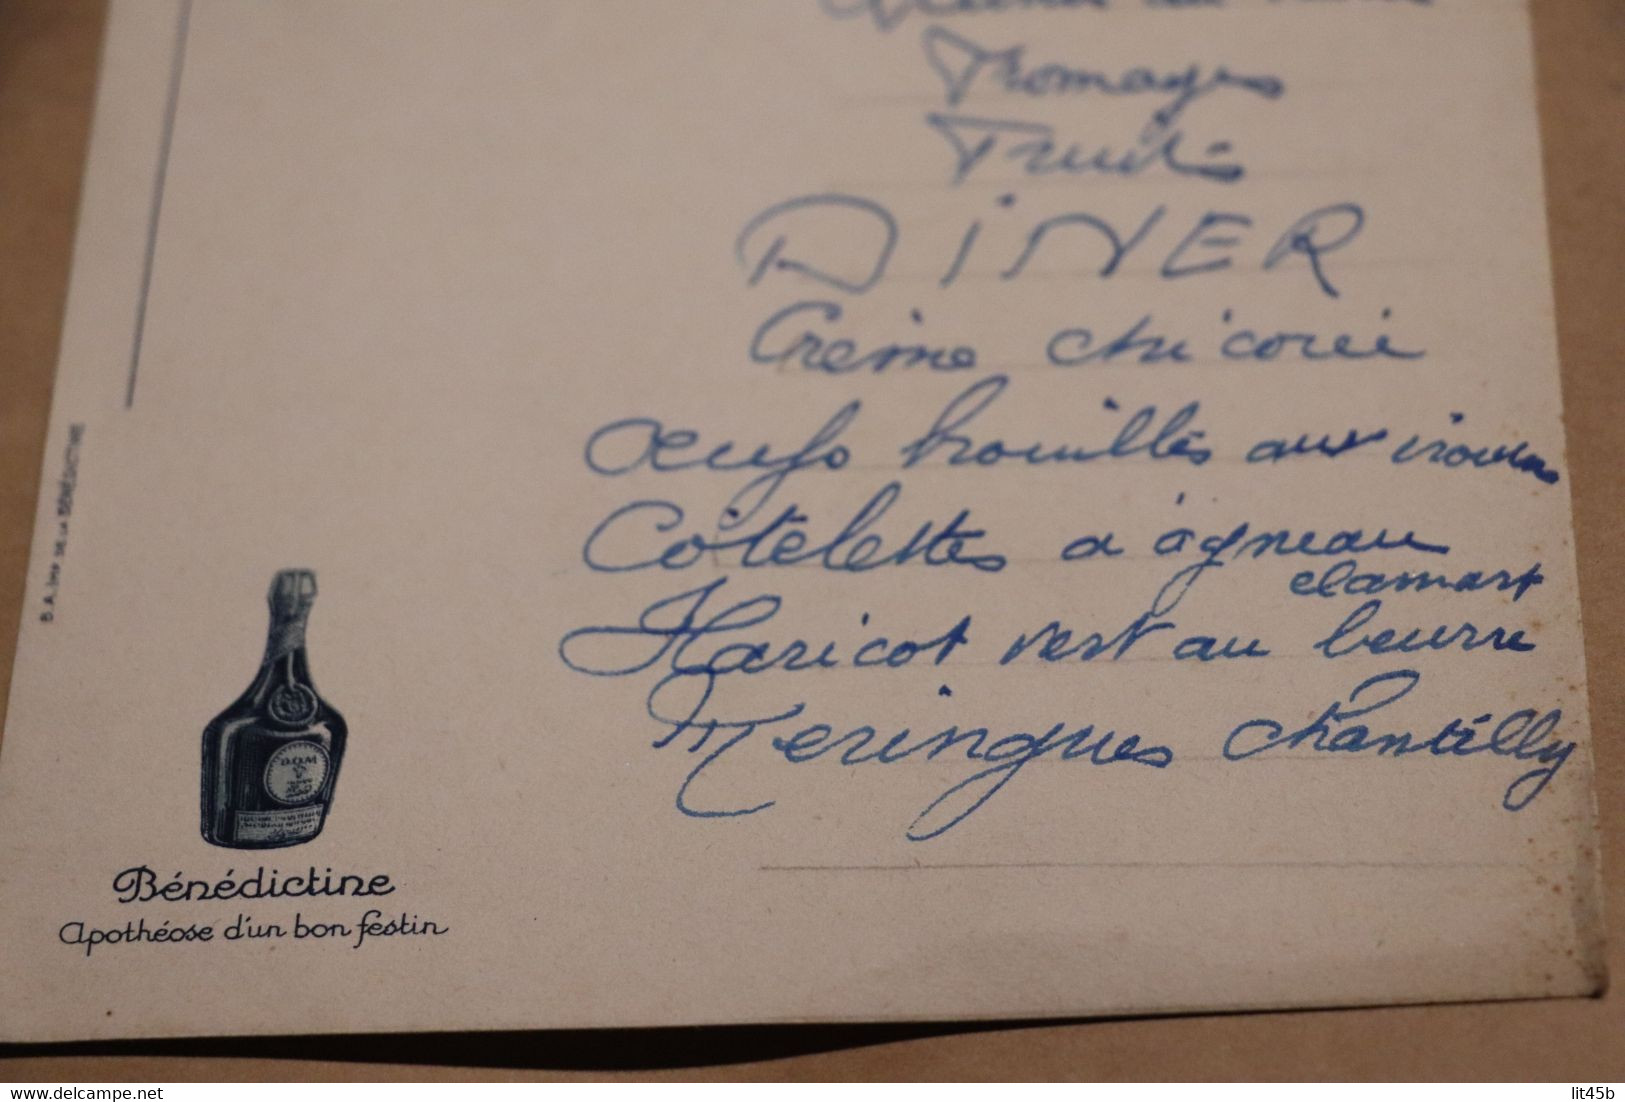 Fromages
Fruits
DINER
Crème chicorée
Oeufs brouillés aux
Côtelettes d'agneau
clamart
Haricot vert au beurre
Meringues Chantilly
B.A. IMP. DE LA BÉNÉDICTINE
D.O.M
Bénédictine
Apothéose d'un bon festin
www.delcampe.net
lit45b